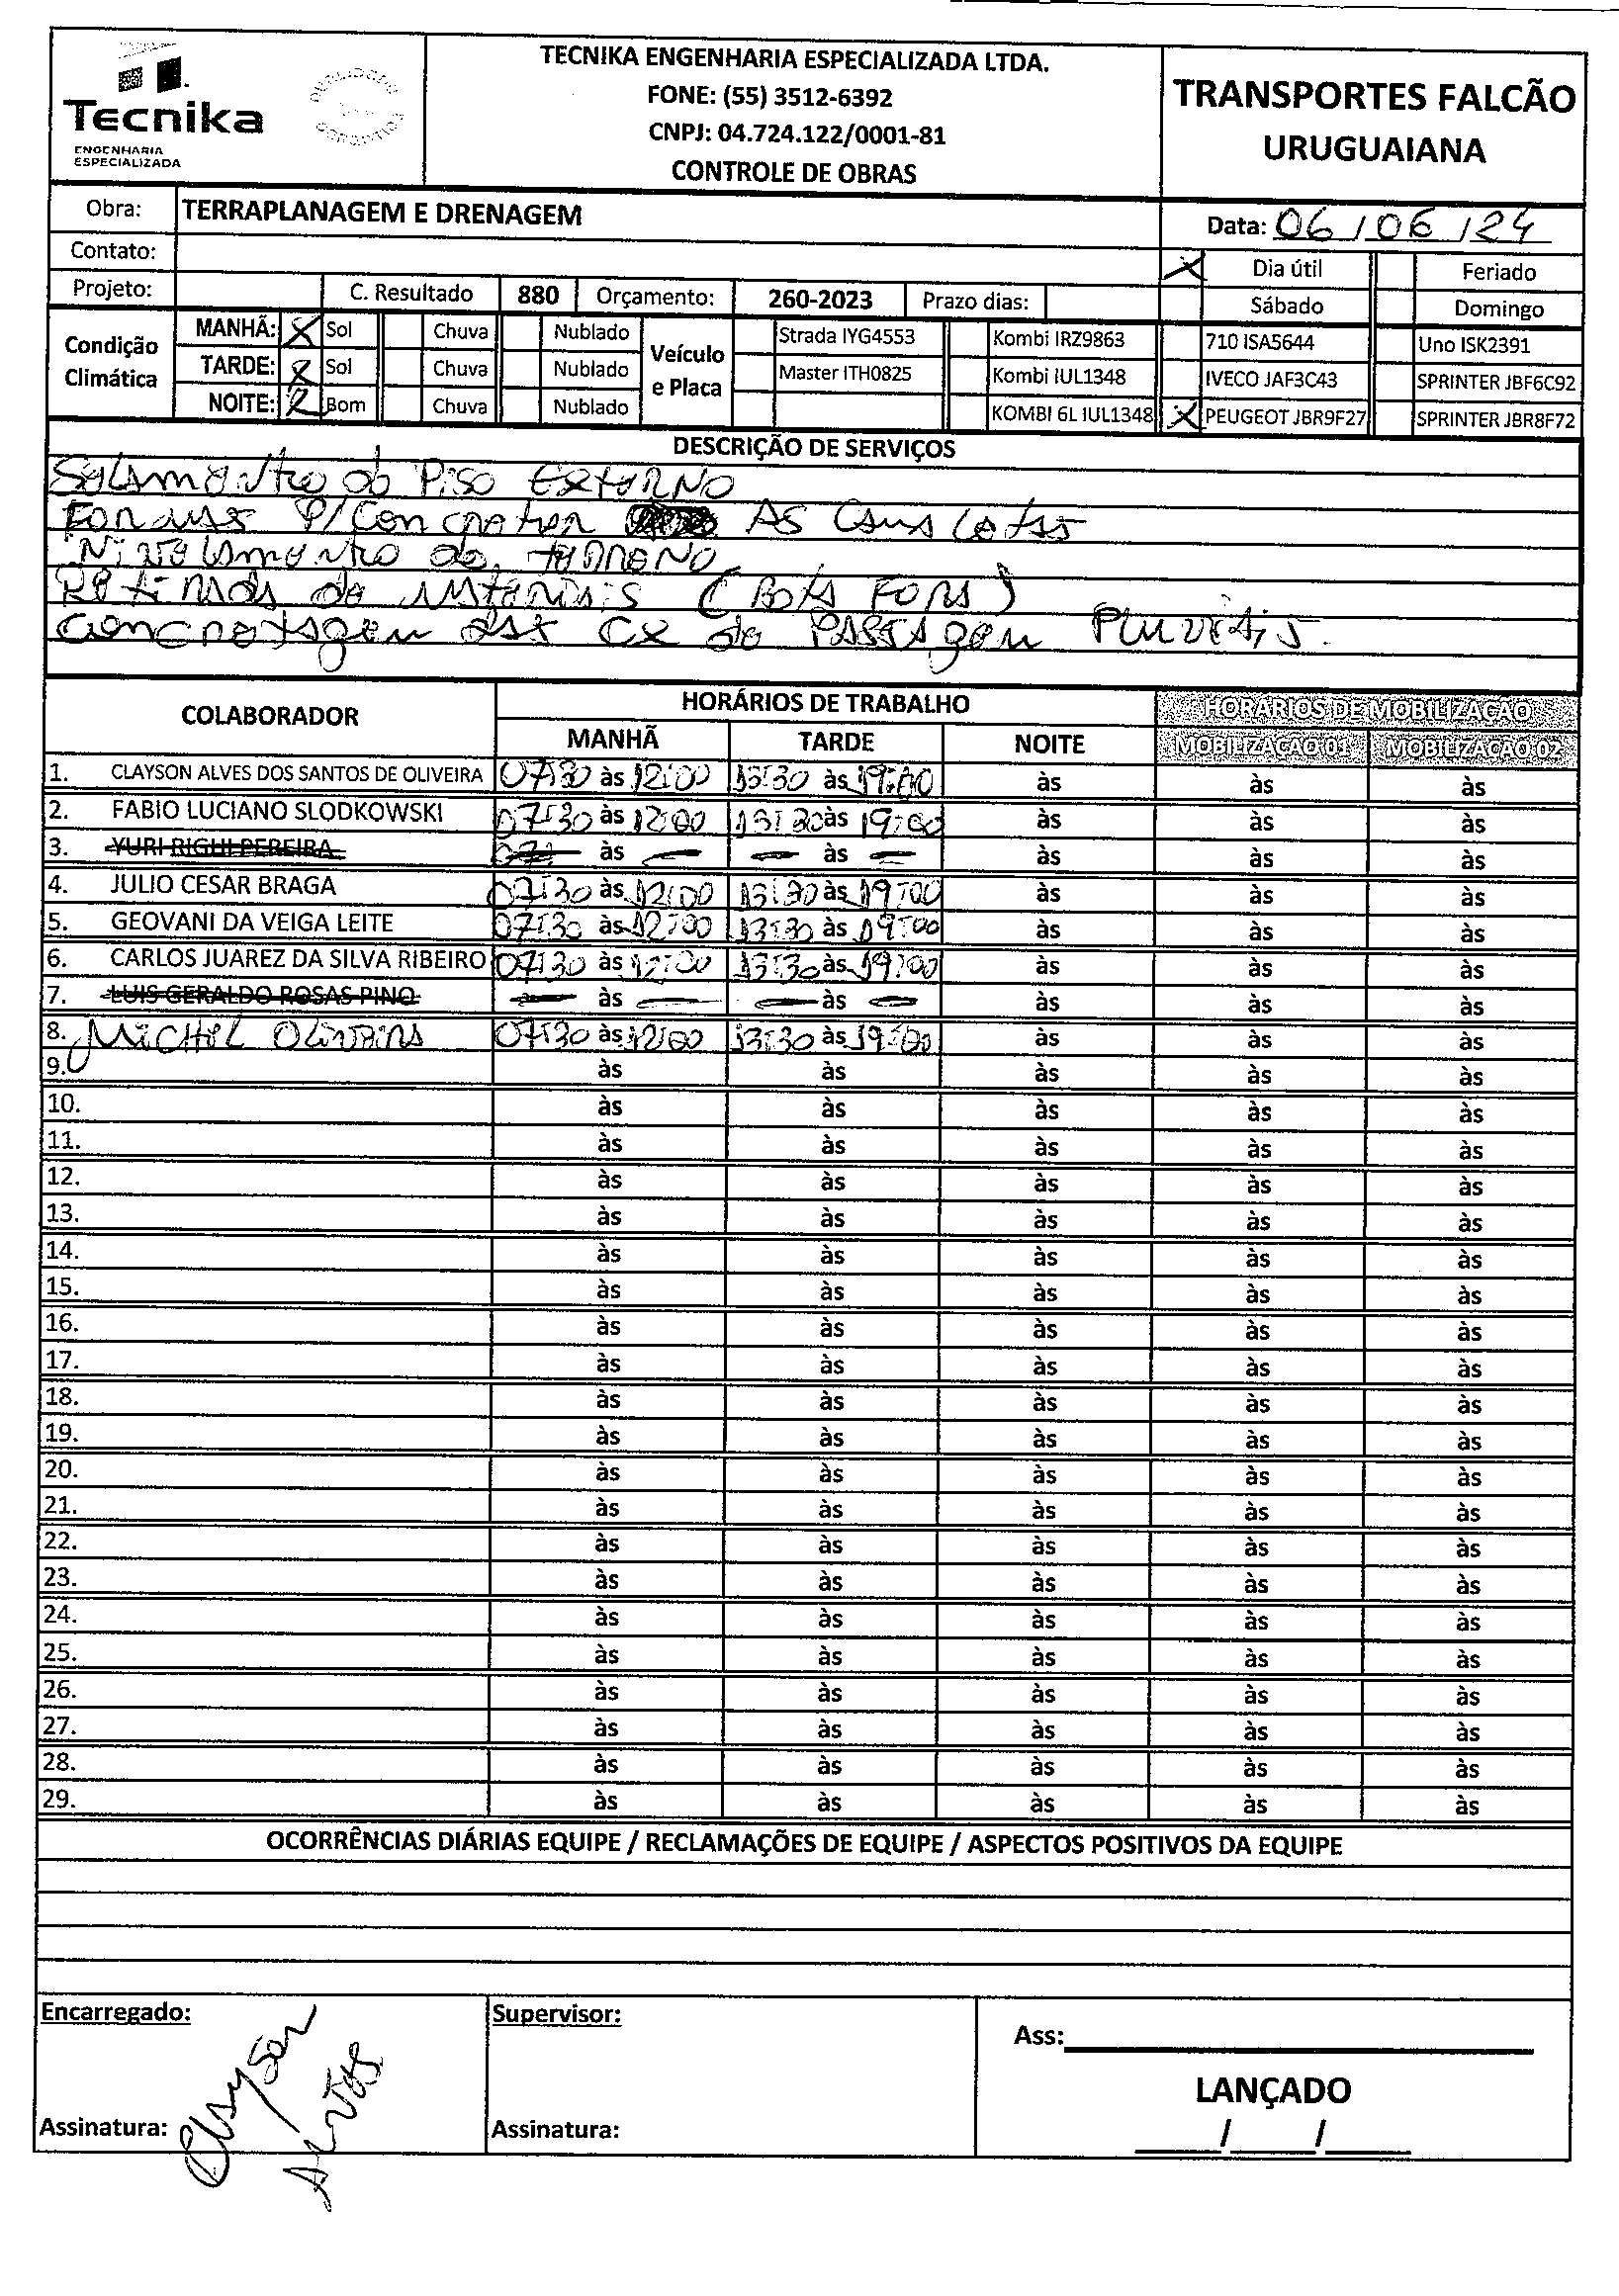 Tecnika
ENGENHARIA
ESPECIALIZADA
TECNIKA ENGENHARIA ESPECIALIZADA LTDA.
FONE: (55) 3512-6392
CNPJ: 04.724.122/0001-81
CONTROLE DE OBRAS
TRANSPORTES FALCÃO
URUGUAIANA
Obra: TERRAPLANAGEM E DRENAGEM
Data: 06/06/24
Contato:
X Dia útil Feriado
Projeto: C. Resultado 880 Orçamento: 260-2023 Prazo dias:
Sábado Domingo
Condição Climática
MANHÃ: X Sol Chuva Nublado
TARDE: X Sol Chuva Nublado
NOITE: X Bom Chuva Nublado
Veículo e Placa
Strada IYG4553 Kombi IRZ9863 710 ISA5644 Uno ISK2391
Master ITH0825 Kombi IUL1348 IVECO JAF3C43 SPRINTER JBF6C92
KOMBI 6L IUL1348 X PEUGEOT JBR9F27 SPRINTER JBR8F72
DESCRIÇÃO DE SERVIÇOS
do Piso Externo
P/ Concretar As
Nivelamento do terreno
Retirada de materiais (Bota Fora)
Concretagem das CX de Passagem Pluviais.
COLABORADOR HORÁRIOS DE TRABALHO HORÁRIOS DE MOBILIZAÇÃO
MANHÃ TARDE NOITE MOBILIZAÇÃO 01 MOBILIZAÇÃO 02
1. CLAYSON ALVES DOS SANTOS DE OLIVEIRA 07:30 às 12:00 13:30 às 19:00 às às às
2. FABIO LUCIANO SLODKOWSKI 07:30 às 12:00 13:30 às 19:00 às às às
3. YURI RIGHI PEREIRA às — — às — às às às
4. JULIO CESAR BRAGA 07:30 às 12:00 13:30 às 19:00 às às às
5. GEOVANI DA VEIGA LEITE 07:30 às 12:00 13:30 às 19:00 às às às
6. CARLOS JUAREZ DA SILVA RIBEIRO 07:30 às 12:00 13:30 às 19:00 às às às
7. LUIS GERALDO ROSAS PINO — às — — às — às às às
8. Michel Oliveira 07:30 às 12:00 13:30 às 19:00 às às às
9. às às às às às
10. às às às às às
11. às às às às às
12. às às às às às
13. às às às às às
14. às às às às às
15. às às às às às
16. às às às às às
17. às às às às às
18. às às às às às
19. às às às às às
20. às às às às às
21. às às às às às
22. às às às às às
23. às às às às às
24. às às às às às
25. às às às às às
26. às às às às às
27. às às às às às
28. às às às às às
29. às às às às às
OCORRÊNCIAS DIÁRIAS EQUIPE / RECLAMAÇÕES DE EQUIPE / ASPECTOS POSITIVOS DA EQUIPE
Encarregado:
Supervisor:
Ass:
LANÇADO
Assinatura: Clayson Alves
Assinatura:
/ /